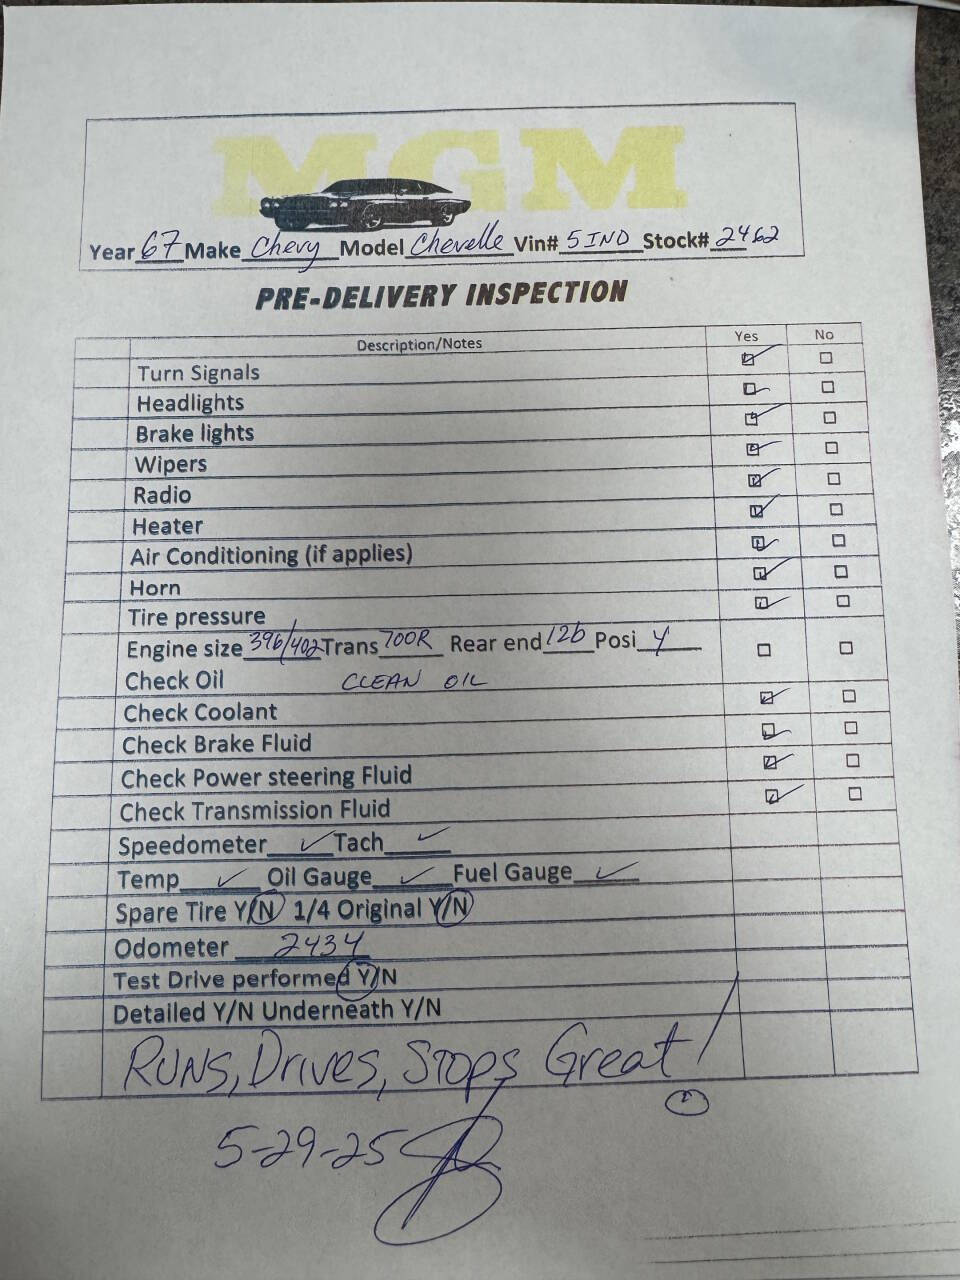 MGM
Year 67 Make Chevy Model Chevelle Vin# 5IND Stock# 2462
PRE-DELIVERY INSPECTION
Description/Notes Yes No
Turn Signals
Headlights
Brake lights
Wipers
Radio
Heater
Air Conditioning (if applies)
Horn
Tire pressure
Engine size 396/402 Trans 700R Rear end 12b Posi Y
Check Oil CLEAN OIL
Check Coolant
Check Brake Fluid
Check Power steering Fluid
Check Transmission Fluid
Speedometer Tach
Temp Oil Gauge Fuel Gauge
Spare Tire Y/N 1/4 Original Y/N
Odometer 2434
Test Drive performed Y/N
Detailed Y/N Underneath Y/N
RUNS, Drives, Stops Great!
5-29-25